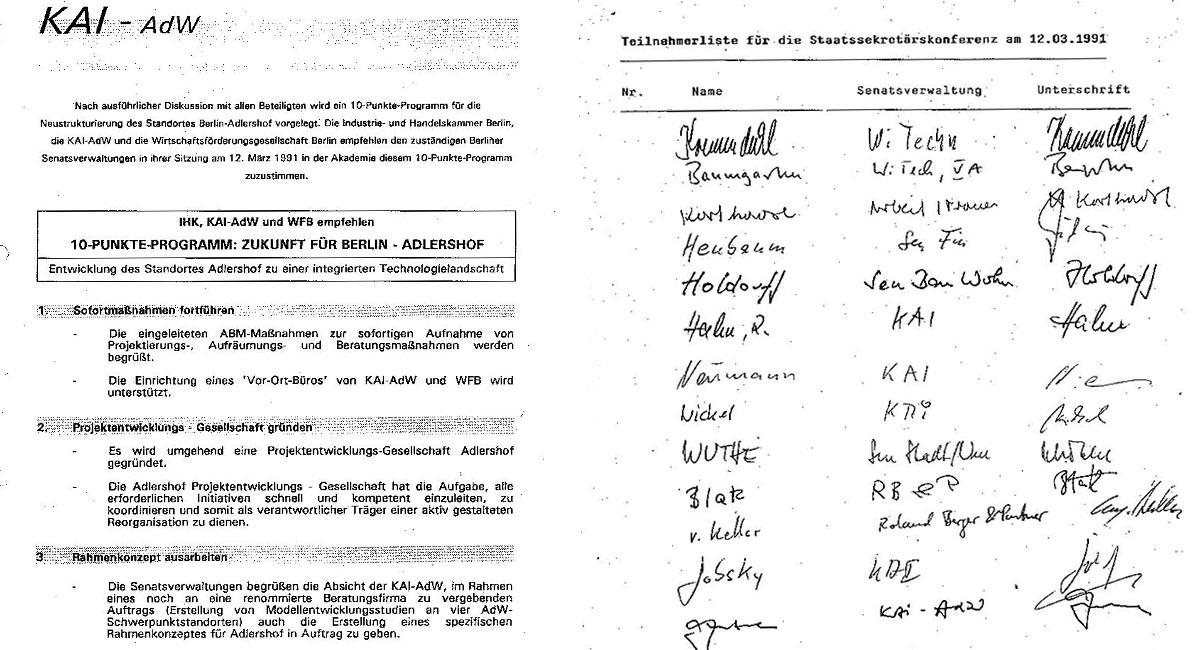 KAI - AdW
Nach ausführlicher Diskussion mit allen Beteiligten wird ein 10-Punkte-Programm für die
Neustrukturierung des Standortes Berlin-Adlershof vorgelegt. Die Industrie- und Handelskammer Berlin,
die KAI-AdW und die Wirtschaftsförderungsgesellschaft Berlin empfehlen den zuständigen Berliner
Senatsverwaltungen in ihrer Sitzung am 12. März 1991 in der Akademie diesem 10-Punkte-Programm
zuzustimmen.
IHK, KAI-AdW und WFB empfehlen
10-PUNKTE-PROGRAMM: ZUKUNFT FÜR BERLIN - ADLERSHOF
Entwicklung des Standortes Adlershof zu einer integrierten Technologielandschaft
1. Sofortmaßnahmen fortführen
- Die eingeleiteten ABM-Maßnahmen zur sofortigen Aufnahme von
Projektierungs-, Aufräumungs- und Beratungsmaßnahmen werden
begrüßt.
- Die Einrichtung eines 'Vor-Ort-Büros' von KAI-AdW und WFB wird
unterstützt.
2. Projektentwicklungs - Gesellschaft gründen
- Es wird umgehend eine Projektentwicklungs-Gesellschaft Adlershof
gegründet.
- Die Adlershof Projektentwicklungs - Gesellschaft hat die Aufgabe, alle
erforderlichen Initiativen schnell und kompetent einzuleiten, zu
koordinieren und somit als verantwortlicher Träger einer aktiv gestalteten
Reorganisation zu dienen.
3 Rahmenkonzept ausarbeiten
- Die Senatsverwaltungen begrüßen die Absicht der KAI-AdW, im Rahmen
eines noch an eine renommierte Beratungsfirma zu vergebenden
Auftrags (Erstellung von Modellentwicklungsstudien an vier AdW-
Schwerpunktstandorten) auch die Erstellung eines spezifischen
Rahmenkonzeptes für Adlershof in Auftrag zu geben.
Teilnehmerliste für die Staatssekretärskonferenz am 12.03.1991
Nr. Name Senatsverwaltung Unterschrift
Wi Techn
Baumgarten Wi Tech, VA
Arbeit / Frauen
Heubaum Sen Fin
Holdorff Sen Bau Wohn Holdorff
Hahn, R. KAI Hahn
Neumann KAI
Nickel KAI Nickel
WUTHE
Blatz RB & P Blatz
v. Keller Roland Berger & Partner
Jobsky KAI
KAi - AdW